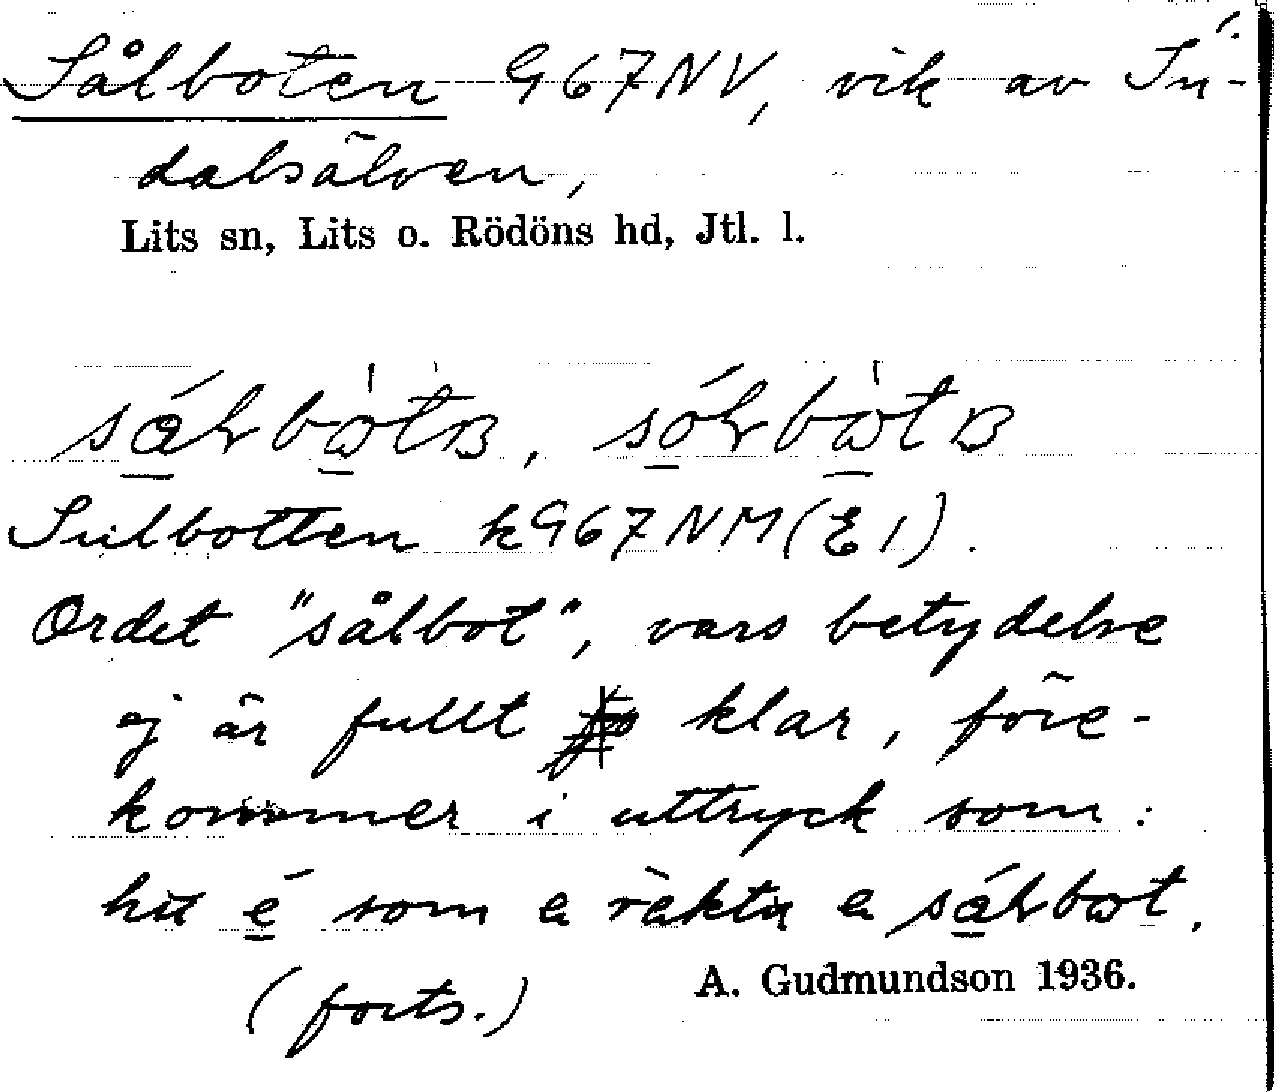 Sålboten 967NV, vik av In-
dalsälven,
Lits sn, Lits o. Rödöns hd, Jtl. l.
Sulbotten k967NM (E1).
Ordet "sålbot", vars betydelse
ej är fullt klar, före-
kommer i uttryck som:
som
(forts.)
A. Gudmundson 1936.